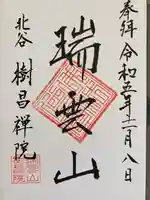 奉拝 令和五年十二月八日
瑞雲山
北谷 樹昌禅院